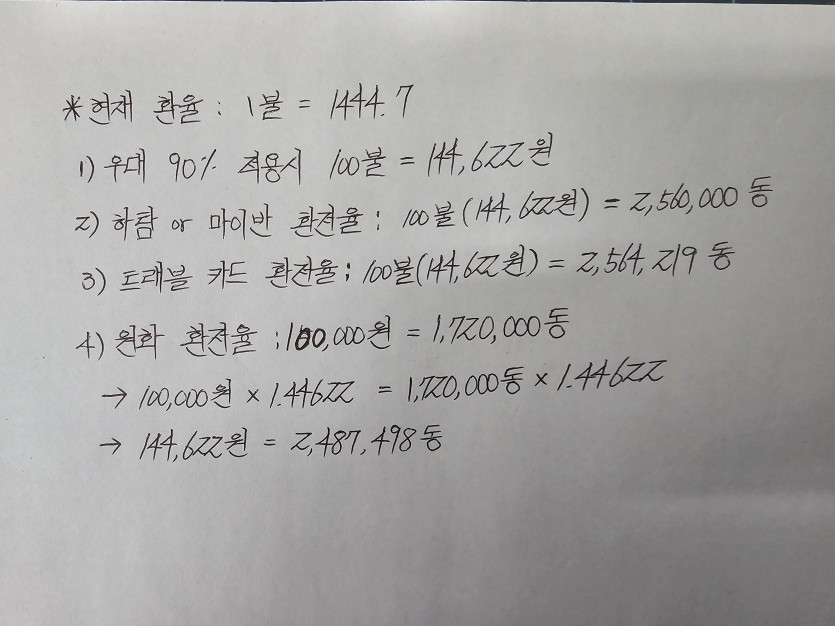 * 현재 환율 : 1불 = 1444.7
1) 우대 90% 적용시 100불 = 144,622원
2) 하탐 or 마이반 환전율 ; 100불(144,622원) = 2,560,000동
3) 트래블 카드 환전율 ; 100불(144,622원) = 2,564,219동
4) 원화 환전율 ; 100,000원 = 1,720,000동
→ 100,000원 × 1.44622 = 1,720,000동 × 1.44622
→ 144,622원 = 2,487,498동